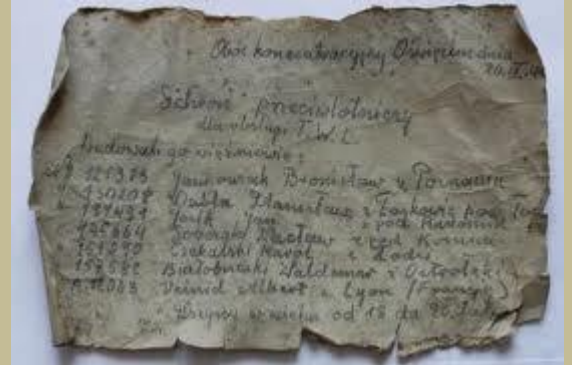 Obóz koncentracyjny Oświęcim dnia
20.IX.44
Schron przeciwlotniczy
dla obsługi T.W.L.
Budowali go więźniowie:
Jankowiak Bronisław z Poznania
130208 Dubla Stanisław z Łaskowic pow.
Jasik Jan z pod Radomia
145664 Sobczak Wacław z pod Konina
151090 Czekalski Karol z Łodzi
157582 Białobrzeski Waldemar z Ostrołęki
A.12063 Veissid Albert z Lyon (Francja)
Wszyscy w wieku od 18 do 20 lat